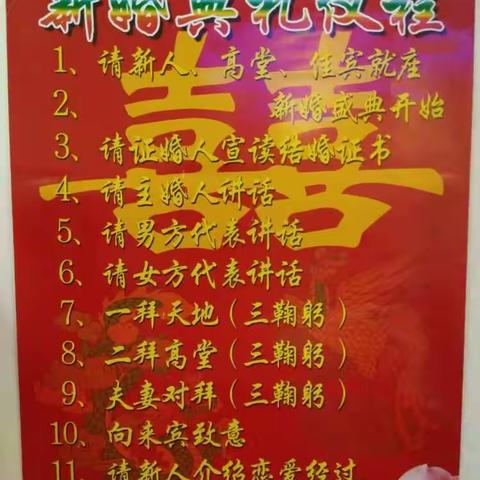 新婚典礼仪程
1、请新人、高堂、佳宾就座
2、新婚盛典开始
3、请证婚人宣读结婚证书
4、请主婚人讲话
5、请男方代表讲话
6、请女方代表讲话
7、一拜天地（三鞠躬）
8、二拜高堂（三鞠躬）
9、夫妻对拜（三鞠躬）
10、向来宾致意
11、请新人介绍恋爱经过
囍